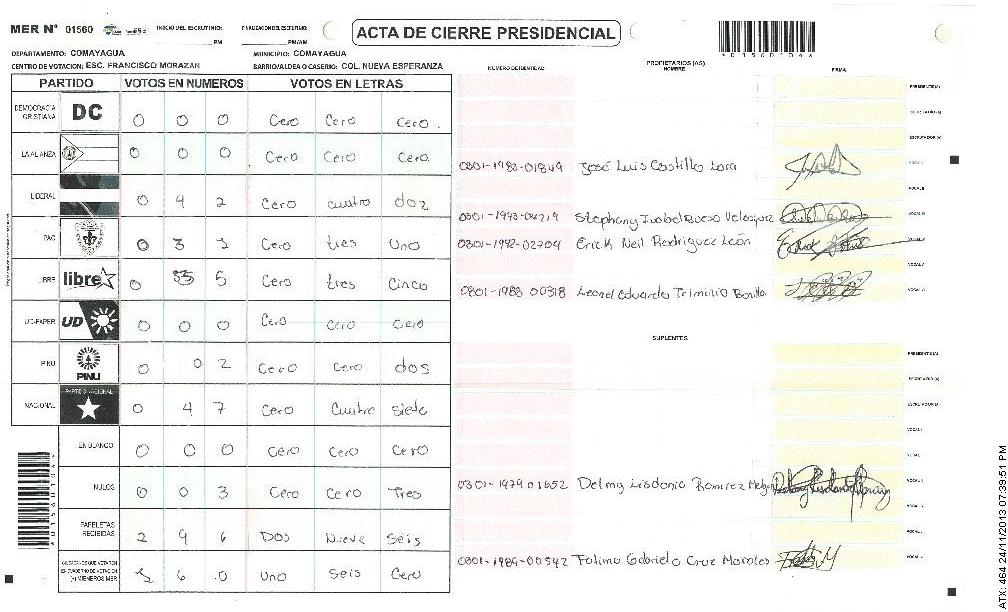 MER Nº 01560 INICIO DEL ESCRUTINIO: FINALIZACION DEL ESCRUTINIO:
PM PM/AM
ACTA DE CIERRE PRESIDENCIAL
DEPARTAMENTO: COMAYAGUA MUNICIPIO: COMAYAGUA
CENTRO DE VOTACION: ESC. FRANCISCO MORAZAN BARRIO/ALDEA O CASERIO: COL. NUEVA ESPERANZA
PARTIDO VOTOS EN NUMEROS VOTOS EN LETRAS
DEMOCRACIA CRISTIANA DC 0 0 0 Cero Cero Cero.
LA ALIANZA 0 0 0 Cero Cero Cero
LIBERAL 0 4 2 Cero cuatro doz
PAC 0 3 1 Cero tres Uno
LIBRE libre 0 3 5 Cero tres Cinco
UD-FAPER UD 0 0 0 Cero Cero Cero
PINU PINU 0 0 2 Cero Cero dos
NACIONAL PARTIDO NACIONAL 0 4 7 Cero Cuatro Siete
EN BLANCO 0 0 0 Cero Cero Cero
NULOS 0 0 3 Cero Cero Tres
PAPELETAS RECIBIDAS 2 9 6 Dos Nueve Seis
CIUDADANOS QUE VOTARON EN CUADERNO DE VOTACION (+) MIEMBROS MER 1 6 0 Uno Seis Cero
NUMERO DE IDENTIDAD PROPIETARIOS (AS) NOMBRE FIRMA
PRESIDENTE(A)
SECRETARIO (A)
ESCRUTADOR (A)
0301-1983-01849 José Luis Castillo Lara VOCAL I
VOCAL II
Stephany Isabel Bueso Velasquez VOCAL III
0301-1992-02704 Erick Neil Rodriguez León
VOCAL V
0801-1988 00318 Leonel Eduardo Triminio Bonilla
SUPLENTES
PRESIDENTE (A)
SECRETARIO (A)
ESCRUTADOR (A)
VOCAL I
VOCAL II
0301-1979 01652 Delmy Lisdania Ramirez
0801-1989-00542 Fatima Gabriela Cruz Morales
ATX: 464 24/11/2013 07:39:51 PM